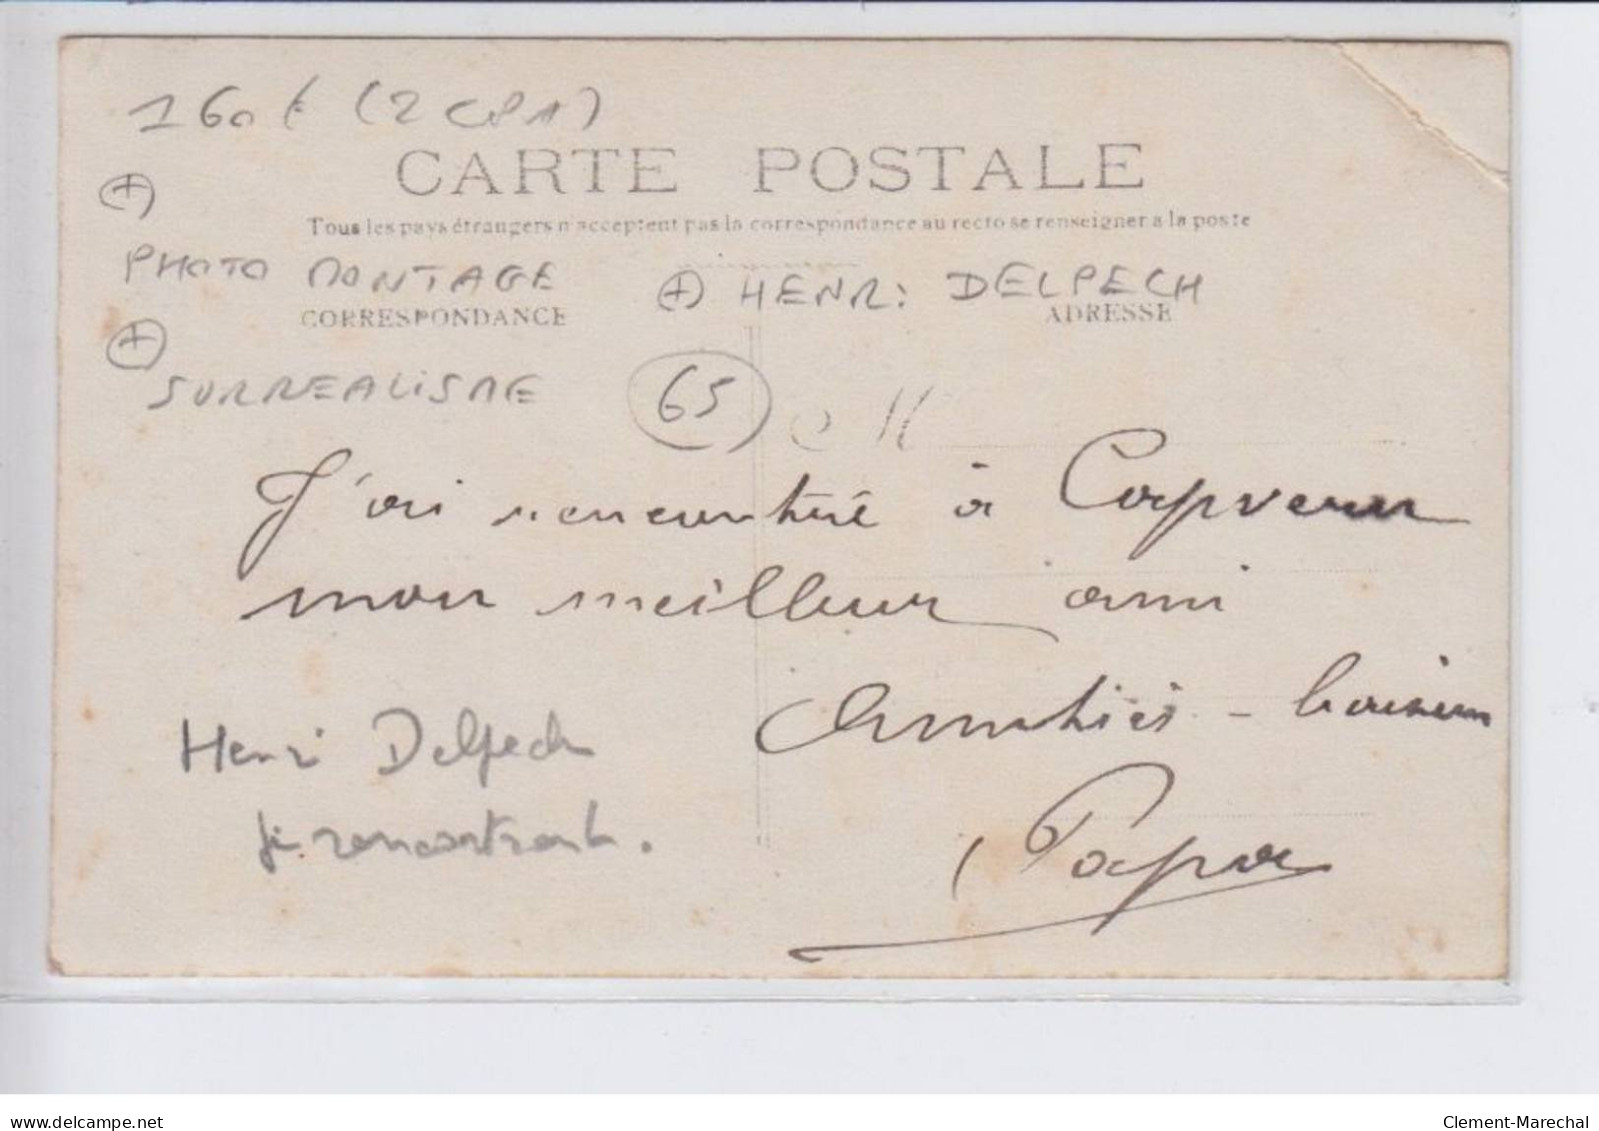 160 € (2 CPA)
CARTE POSTALE
Tous les pays étrangers n'acceptent pas la correspondance au recto se renseigner a la poste
+
PHOTO MONTAGE + HENRi DELPECH
CORRESPONDANCE ADRESSE
+
SURREALISME 65
J'ai rencontré à Capvern
mon meilleur ami
Amitiés - baisers
Henri Delpech
se rencontrant.
Papa
delcampe.net
Clement-Marechal